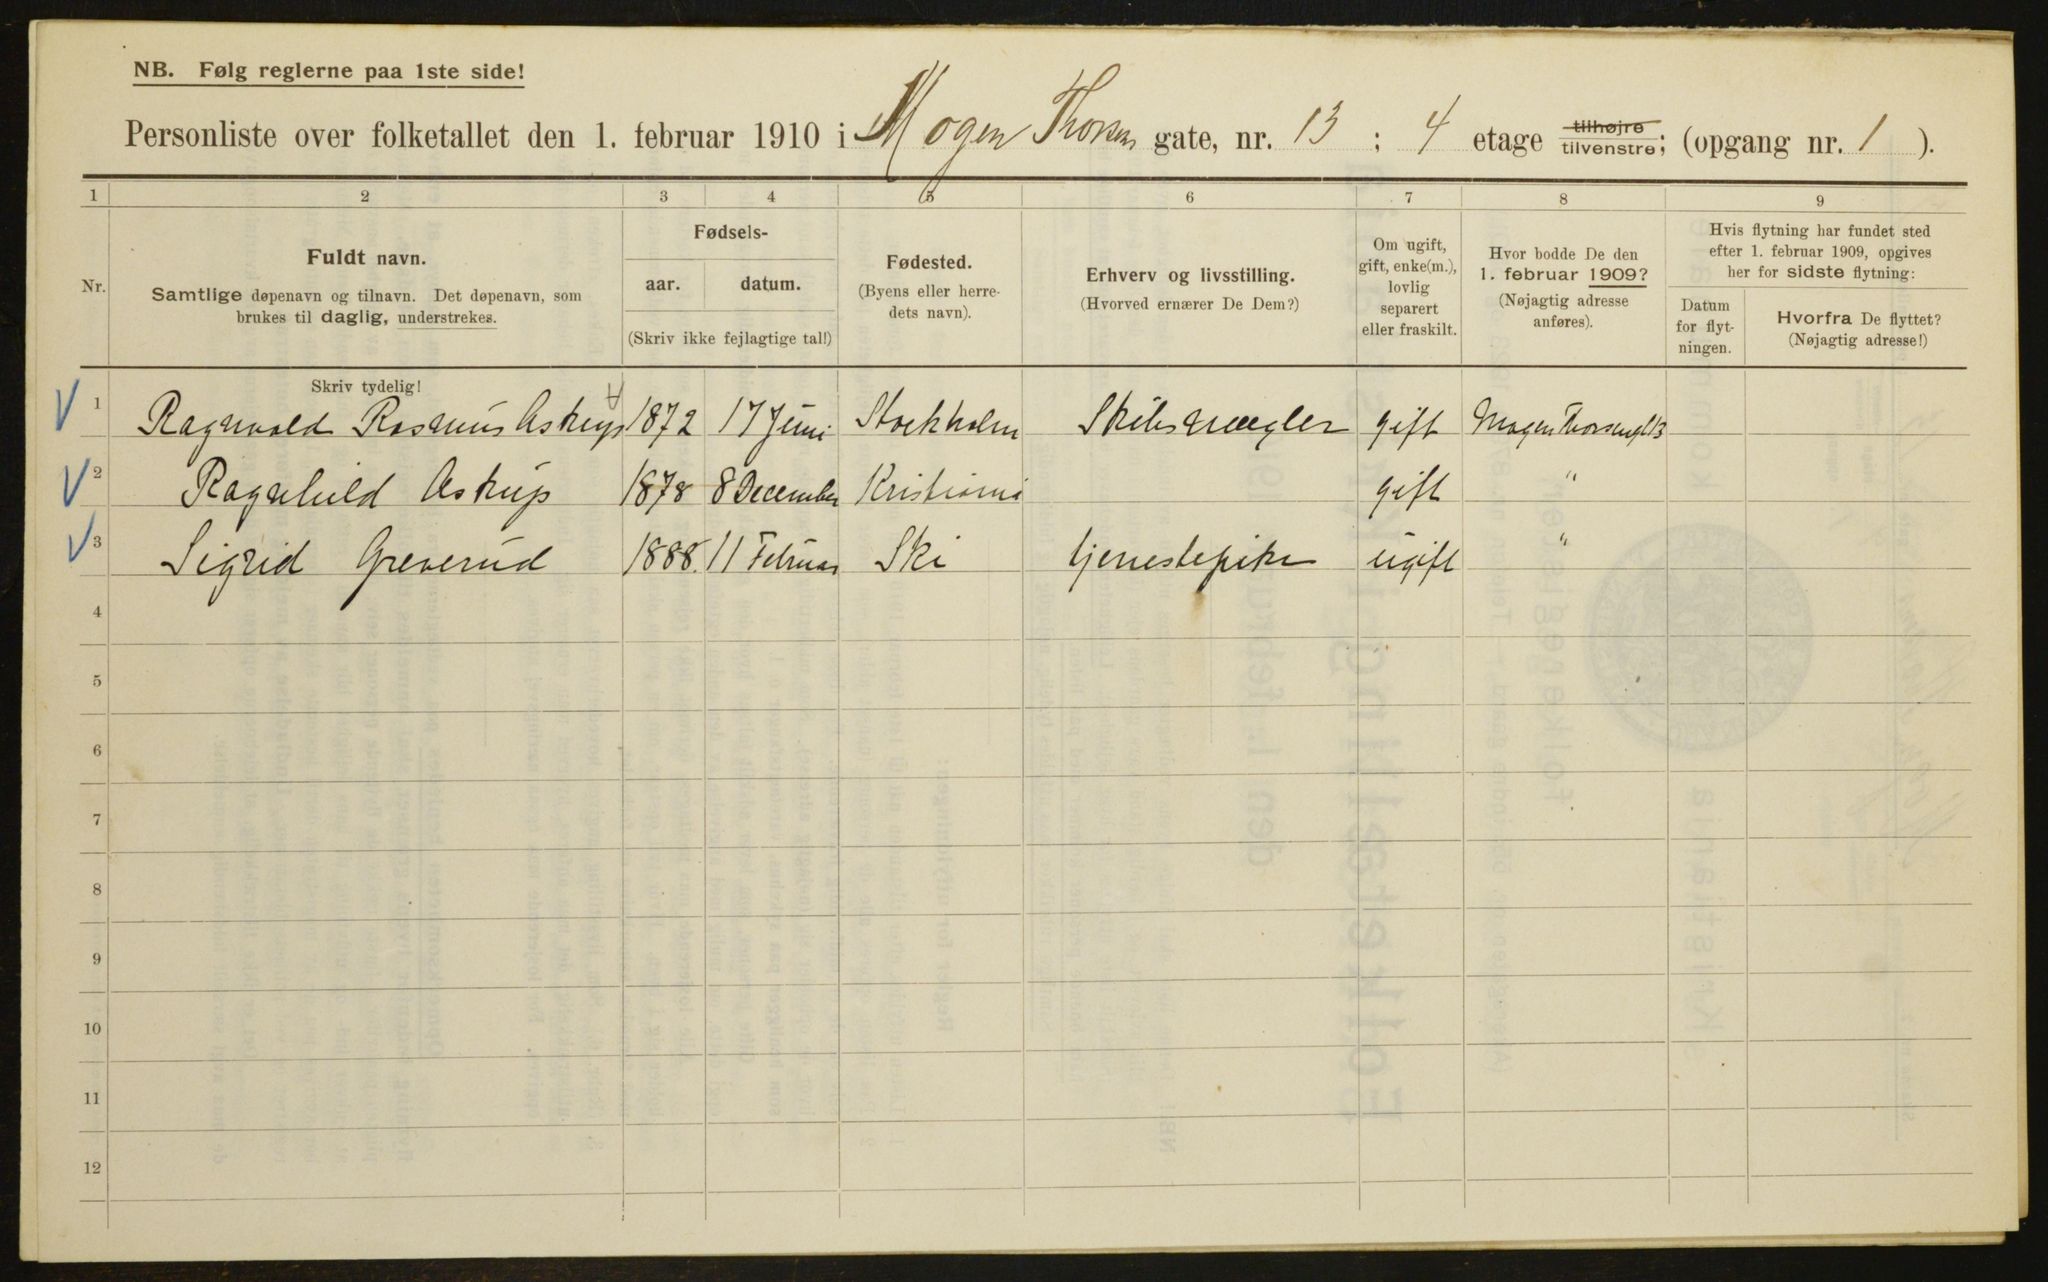 NB. Følg reglerne paa 1ste side!
Personliste over folketallet den 1. februar 1910 i Mogen Thorsens gate, nr. 13 ; 4 etage tilhøjre tilvenstre; (opgang nr. 1 ).
1 2 3 4 5 6 7 8 9
Nr.
Fuldt navn.
Samtlige døpenavn og tilnavn. Det døpenavn, som
brukes til daglig, understrekes.
Fødsels-
aar. datum.
(Skriv ikke fejlagtige tal!)
Fødested.
(Byens eller herre-
dets navn).
Erhverv og livsstilling.
(Hvorved ernærer De Dem?)
Om ugift,
gift, enke(m.),
lovlig
separert
eller fraskilt.
Hvor bodde De den
1. februar 1909?
(Nøjagtig adresse
anføres).
Hvis flytning har fundet sted
efter 1. februar 1909, opgives
her for sidste flytning:
Datum
for flyt-
ningen.
Hvorfra De flyttet?
(Nøjagtig adresse!)
Skriv tydelig!
1 Ragnvald Rasmus Astrup 1872 17 Juni Stockholm Skibsmægler gift Mogen Thorsensgt 13
2 Ragnhild Astrup 1878 8 December Kristiania gift "
3 Sigrid Greverud 1888. 11 Februar Ski tjenestepike ugift "
4
5
6
7
8
9
10
11
12